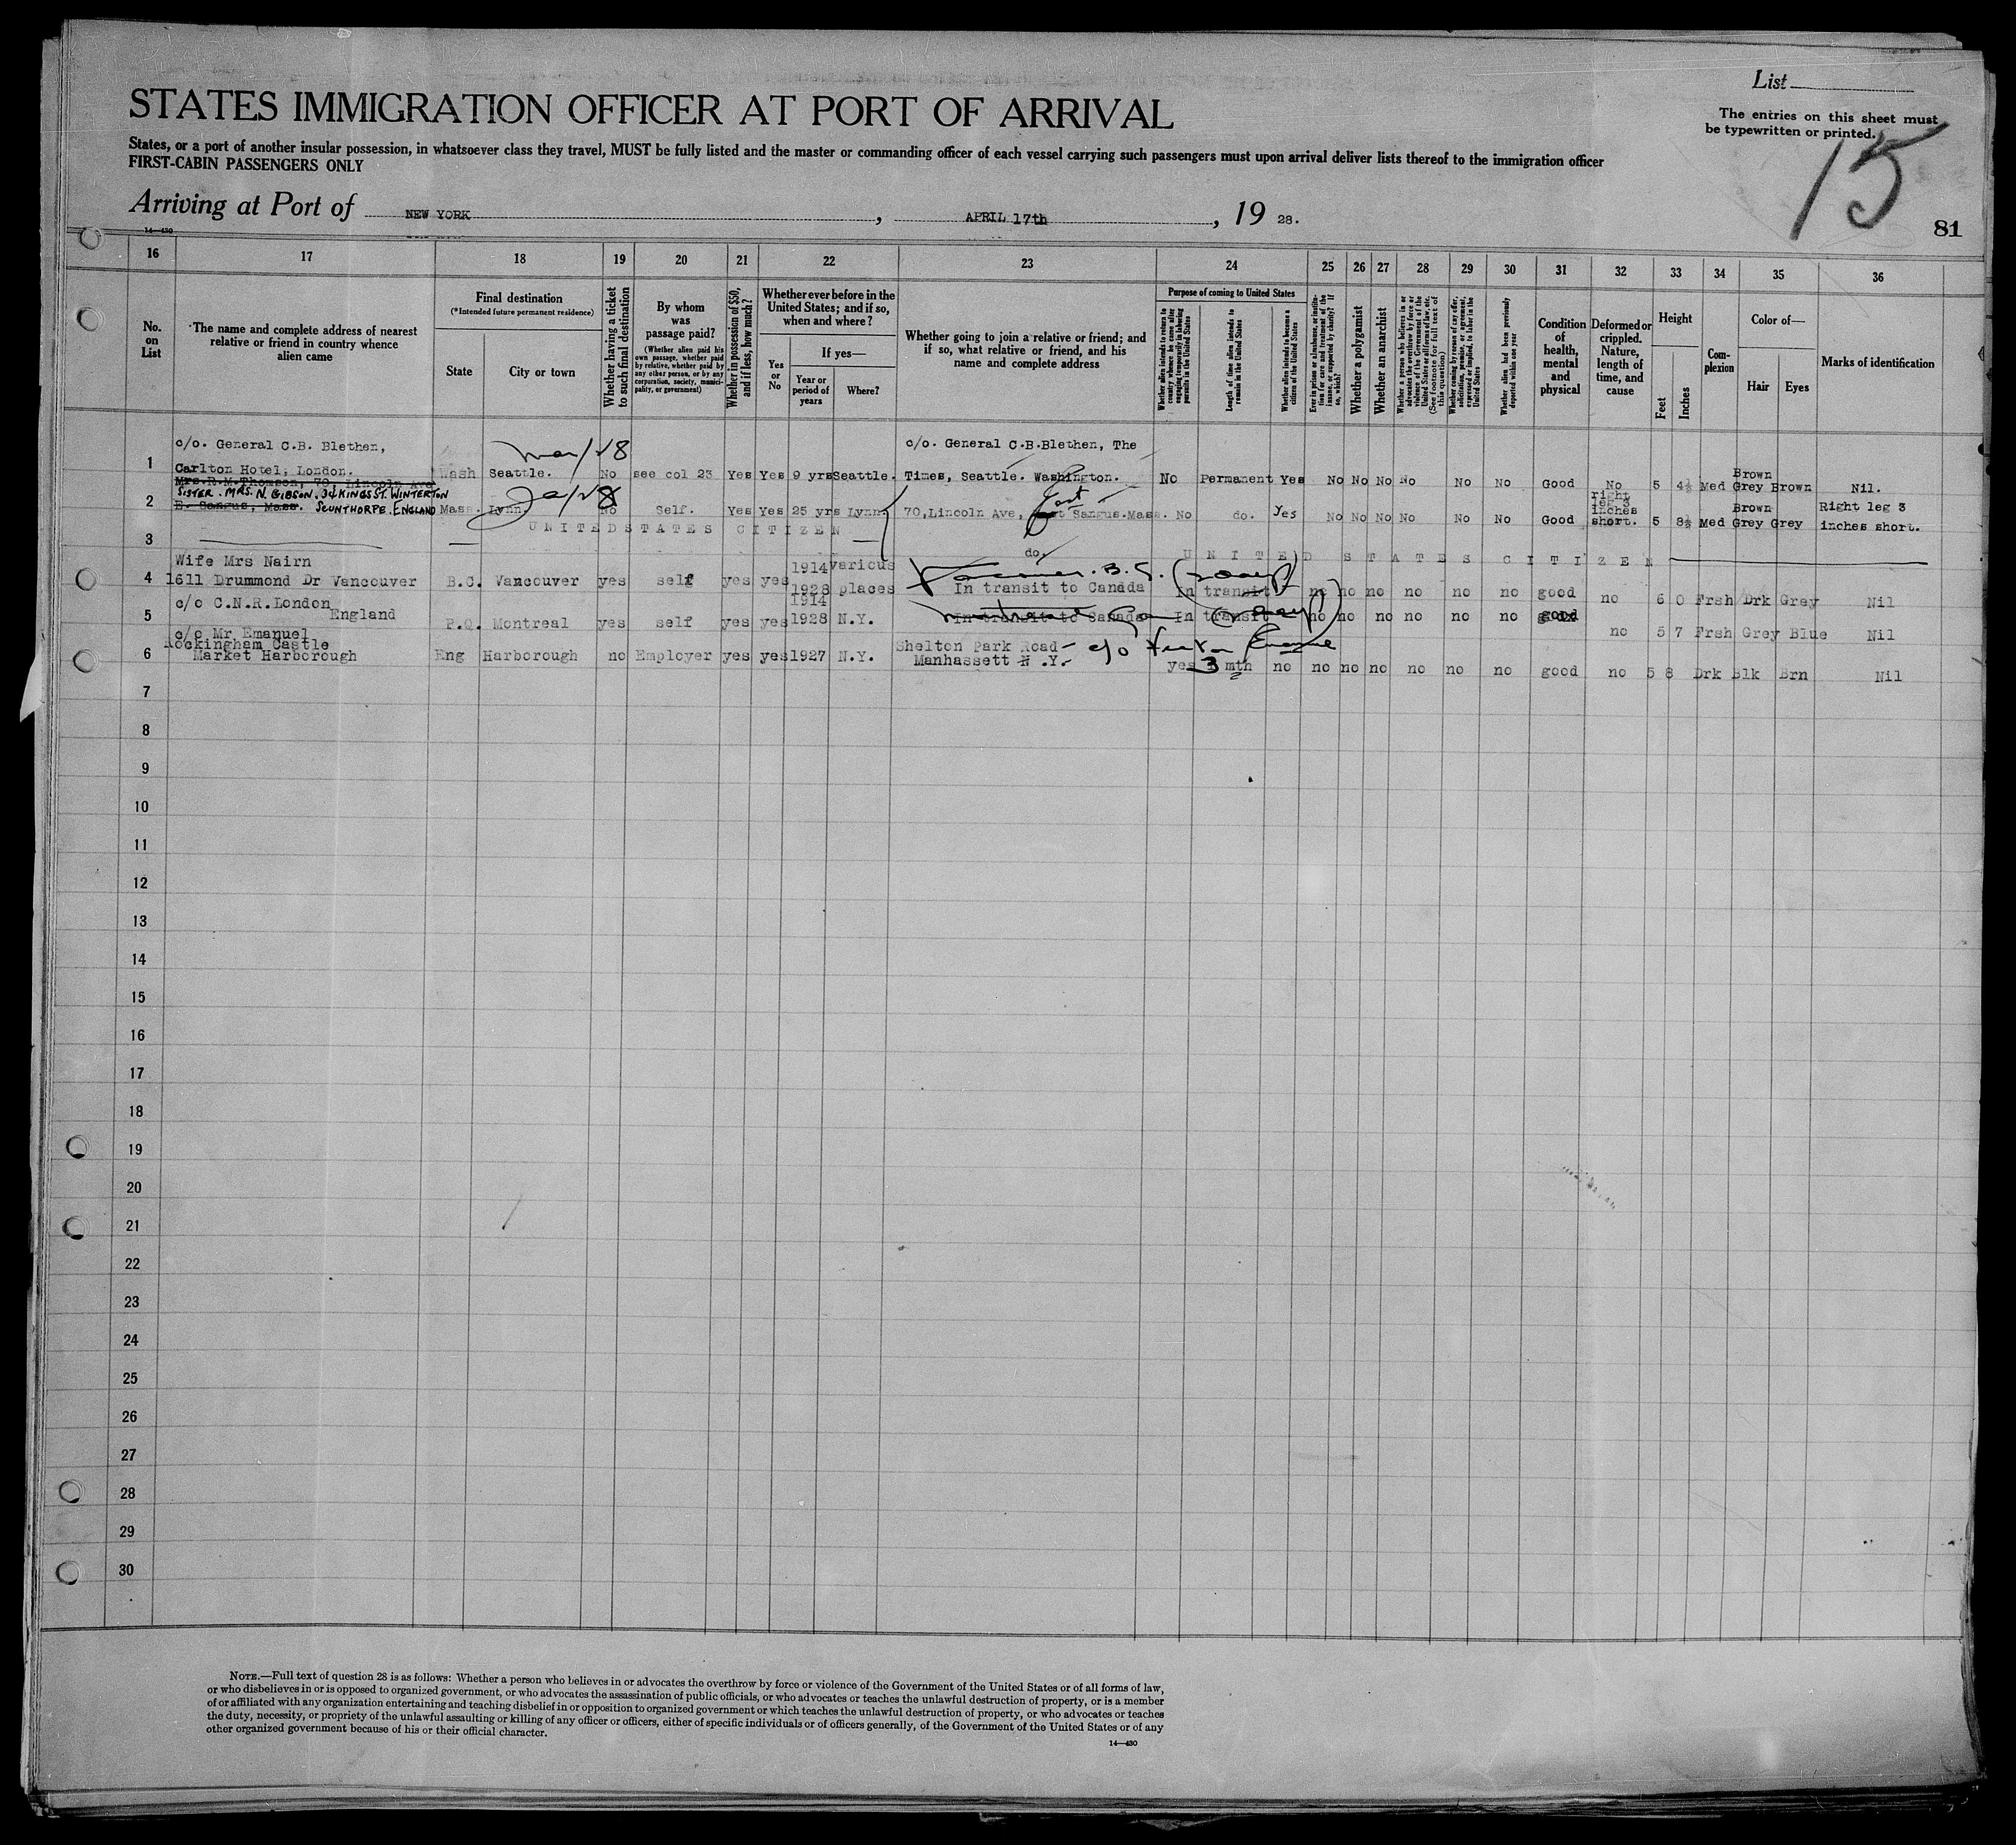 List
The entries on this sheet must
be typewritten or printed.
15
STATES IMMIGRATION OFFICER AT PORT OF ARRIVAL
States, or a port of another insular possession, in whatsoever class they travel, MUST be fully listed and the master or commanding officer of each vessel carrying such passengers must upon arrival deliver lists thereof to the immigration officer
FIRST-CABIN PASSENGERS ONLY
Arriving at Port of NEW YORK, APRIL 17th, 19 28.
14—430
81
16 17 18 19 20 21 22 23 24 25 26 27 28 29 30 31 32 33 34 35 36
No. on List
The name and complete address of nearest relative or friend in country whence alien came
Final destination
(*Intended future permanent residence)
State
City or town
Whether having a ticket to such final destination
By whom was passage paid?
(Whether alien paid his own passage, whether paid by relative, whether paid by any other person, or by any corporation, society, municipality, or government)
Whether in possession of $50, and if less, how much?
Whether ever before in the United States; and if so, when and where?
Yes or No
If yes—
Year or period of years
Where?
Whether going to join a relative or friend; and if so, what relative or friend, and his name and complete address
Purpose of coming to United States
Whether alien intends to return to country whence he came after engaging temporarily in laboring pursuits in the United States
Length of time alien intends to remain in the United States
Whether alien intends to become a citizen of the United States
Ever in prison or almshouse, or institution for care and treatment of the insane, or supported by charity? If so, which?
Whether a polygamist
Whether an anarchist
Whether a person who believes in or advocates the overthrow by force or violence of the Government of the United States or all forms of law, etc. (See footnote for full text of this question)
Whether coming by reason of any offer, solicitation, promise, or agreement, expressed or implied, to labor in the United States
Whether alien had been previously deported within one year
Condition of health, mental and physical
Deformed or crippled. Nature, length of time, and cause
Height
Feet
Inches
Complexion
Color of—
Hair
Eyes
Marks of identification
1 c/o. General C.B. Blethen,
Carlton Hotel, London. Wash Seattle. No see col 23 Yes Yes 9 yrs Seattle.
c/o. General C.B.Blethen, The
Times, Seattle. Washington. No Permanent Yes No No No No No No Good No 5 4½ Med Brown Grey Brown Nil.
2 Mrs.R.M.Thomson, 70, Lincoln Ave
SISTER. MRS. N. GIBSON. 34 KINGS ST. WINTERTON
E. Sangus, Mass. SCUNTHORPE. ENGLAND Mass. Lynn. No Self. Yes Yes 25 yrs Lynn.
70,Lincoln Ave, East Sangus.Mass. No do. Yes No No No No No No Good right leg 3 inches short. 5 8½ Med Brown Grey Grey Right leg 3 inches short.
3 UNITED STATES CITIZEN do. UNITED STATES CITIZEN
4 Wife Mrs Nairn
1611 Drummond Dr Vancouver B.C. Vancouver yes self yes yes 1914 1928 various places
In transit to Canada In transit no no no no no no good no 6 0 Frsh Drk Grey Nil
5 c/o C.N.R.London
England P.Q. Montreal yes self yes yes 1914 1928 N.Y.
In transit to Canada In transit no no no no no no good no 5 7 Frsh Grey Blue Nil
6 c/o Mr Emanuel
Rockingham Castle
Market Harborough Eng Harborough no Employer yes yes 1927 N.Y.
Shelton Park Road c/o
Manhassett N.Y. yes 3 mth no no no no no no no good no 5 8 Drk Blk Brn Nil
7
8
9
10
11
12
13
14
15
16
17
18
19
20
21
22
23
24
25
26
27
28
29
30
NOTE.—Full text of question 28 is as follows: Whether a person who believes in or advocates the overthrow by force or violence of the Government of the United States or of all forms of law,
or who disbelieves in or is opposed to organized government, or who advocates the assassination of public officials, or who advocates or teaches the unlawful destruction of property, or is a member
of or affiliated with any organization entertaining and teaching disbelief in or opposition to organized government or which teaches the unlawful destruction of property, or who advocates or teaches
the duty, necessity, or propriety of the unlawful assaulting or killing of any officer or officers, either of specific individuals or of officers generally, of the Government of the United States or of any
other organized government because of his or their official character.
14—430